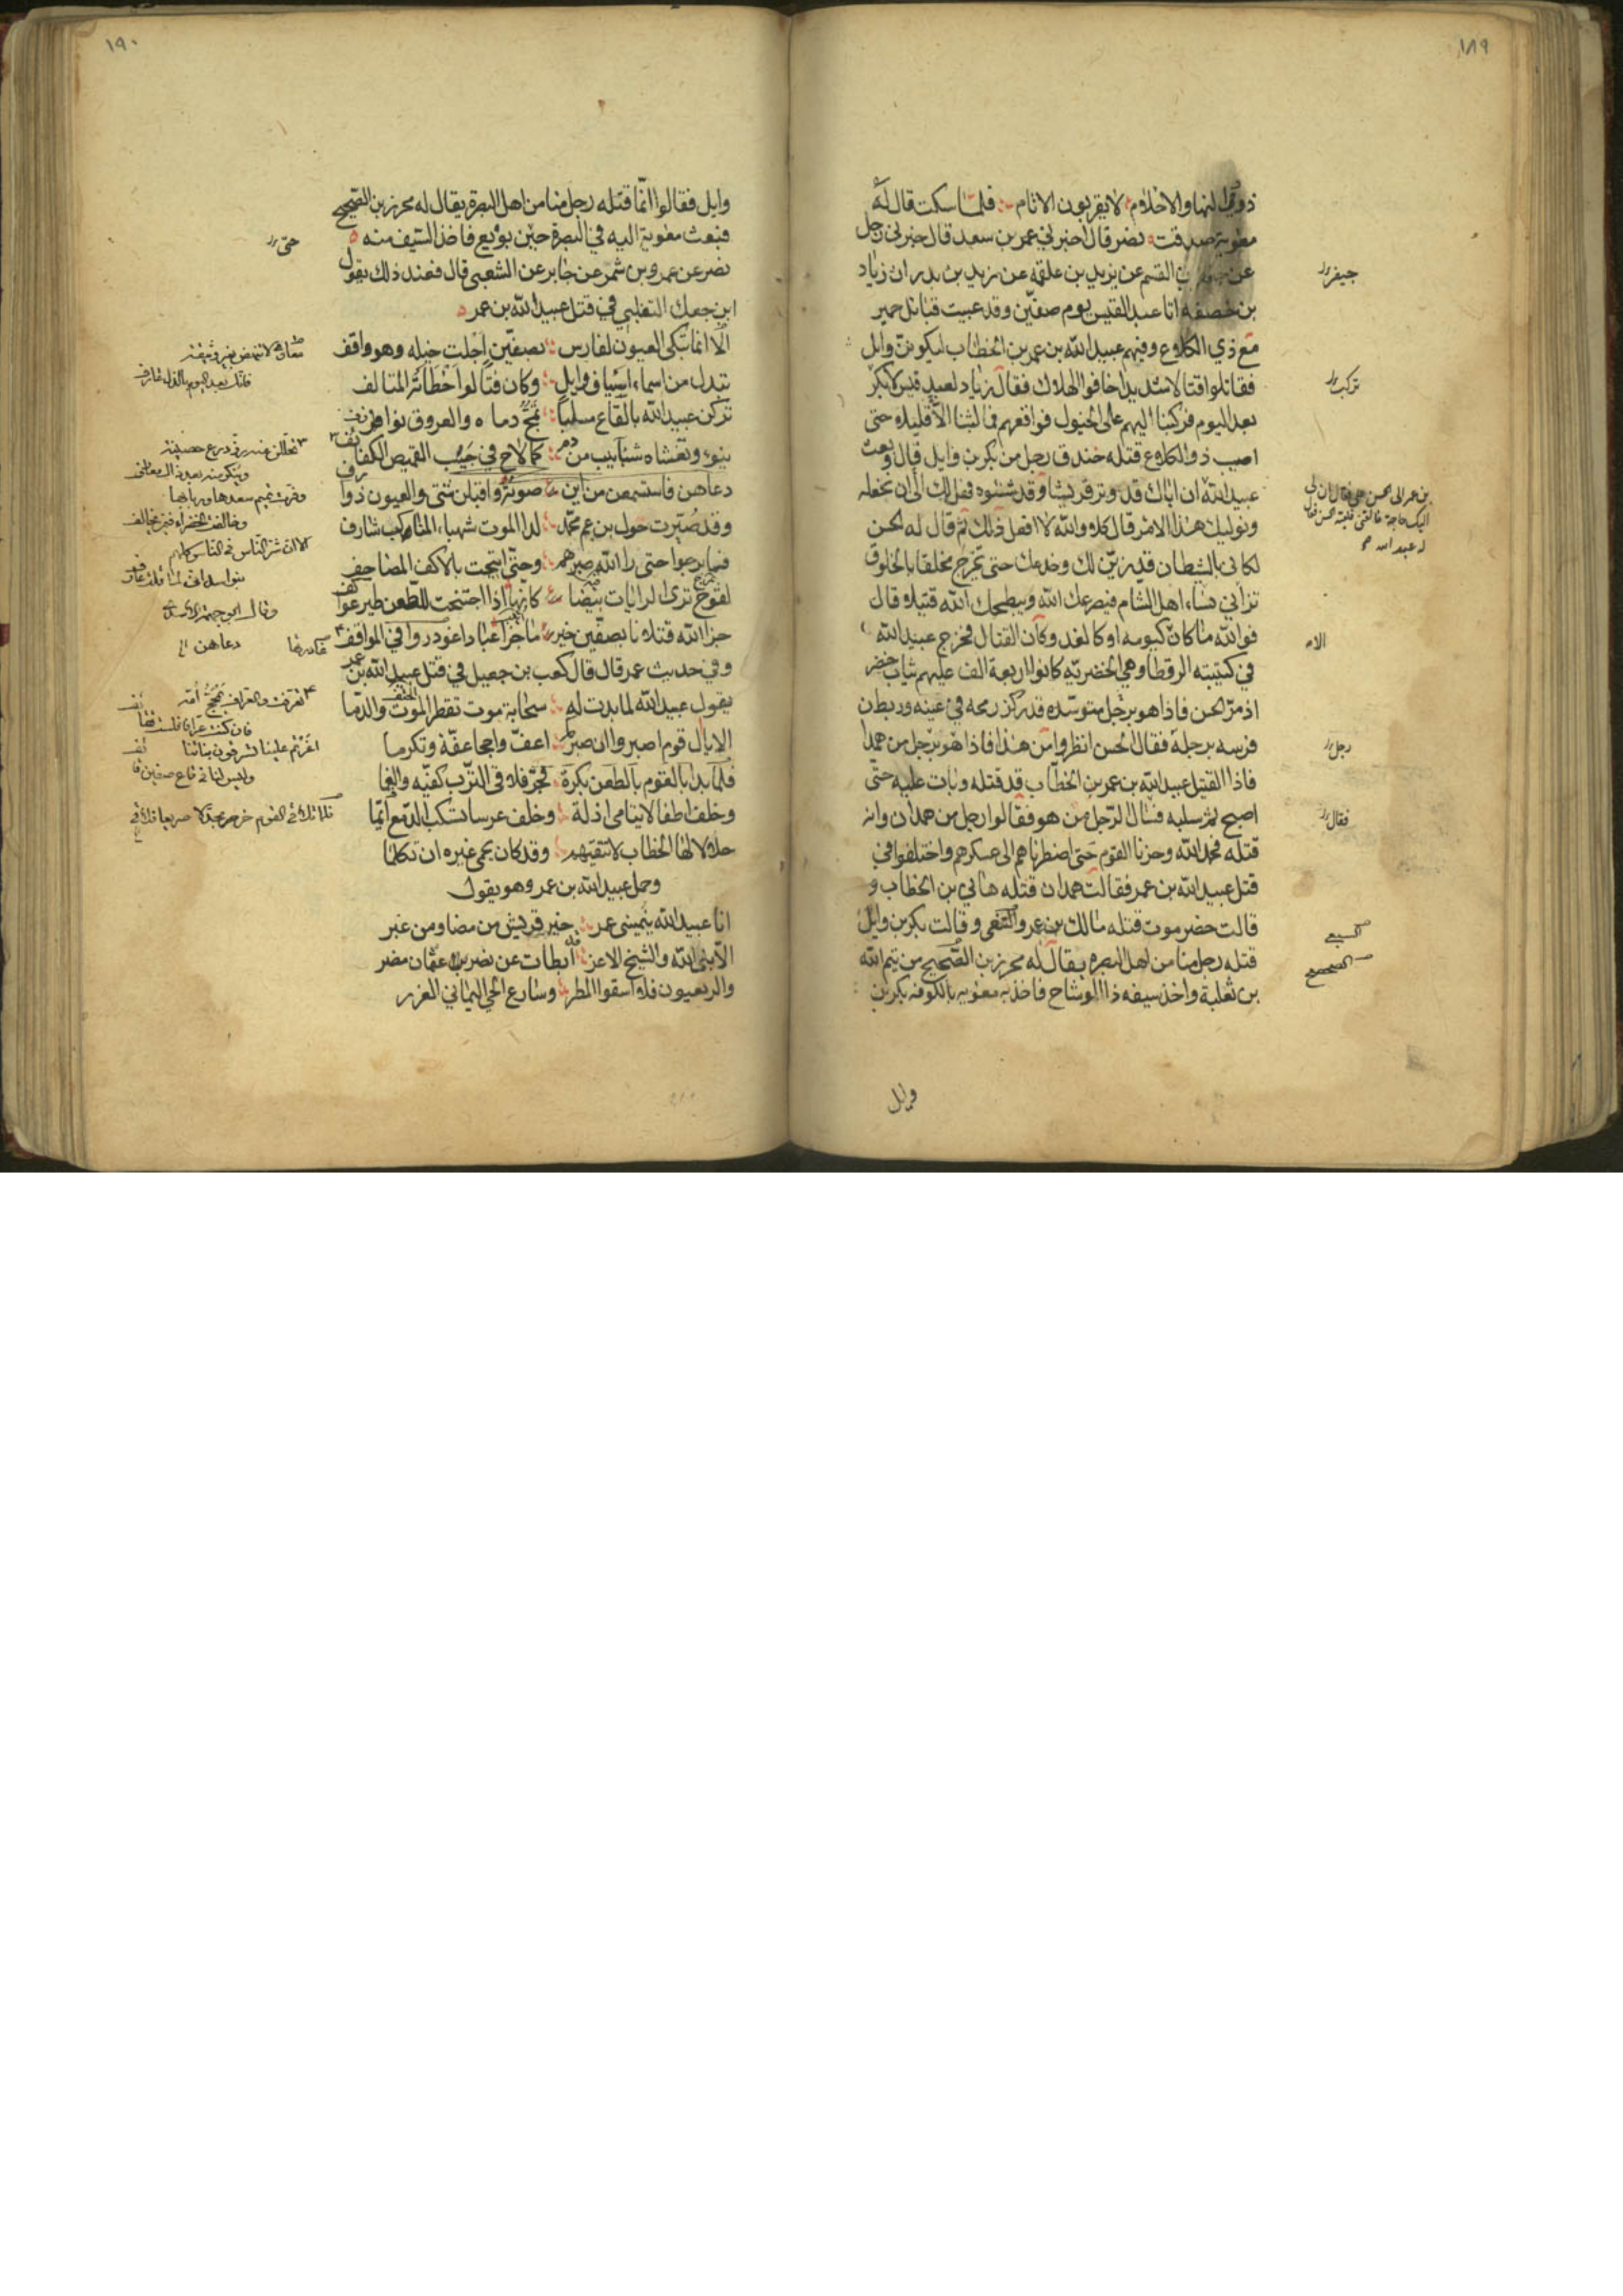 ١٨٩
ذووا النها والاحلام لا يقربون الاثام فلما سكت قال له
معوية صدقت نصر قال اخبرني عمر بن سعد قال خبرني رجل
عن القسم عن يزيد بن علقمه عن زيد بن بدر ان زياد
جيفر
بن خصفه اتا عبد القيس يوم صفين وقد عبيت قبائل حمير
مع ذي الكلاع وفيهم عبيد الله بن عمر بن الخطاب لبكر بن وايل
فقاتلوا قتالا شديدا خافوا الهلاك فقال زياد لعبد قيس لا بكر
بعد اليوم فركبنا اليهم على الخيول فواقعهم فما لبثنا الا قليلا حتى
اصيب ذو الكلاع قتله خندف رجل من بكر بن وايل قال وبعث
عبيد الله ان اباك قد وتر قريشا وقد شنئوه فهل لك الى ان نخلعه
بن عمر الى الحسن بن علي فقال ان لي
اليك حاجة فالقني فلقيه الحسن فقال
له عبيد الله
ونوليك هذا الامر قال كلا والله لا افعل ذلك ثم قال له الحسن
لكاني بالشيطان قد زين لك وخدعك حتى تخرج مخلقا بالخلوق
تراني نساء اهل الشام فيصرعك الله ويبطحك الله قتيلا وقال
فوالله ما كان كيومه او كالغد وكان القتال فخرج عبيد الله
الا
في كتيبته الرقطا وهي الخضريه كانوا اربعة الف عليهم ثياب خضر
اذ مر الحسن فاذا هو برجل متوسده قد ركز رمحه في عينه وربط
فرسه برجله فقال الحسن انظروا من هذا فاذا هو برجل من همدان
رجل
فاذا القتيل عبيد الله بن عمر بن الخطاب قد قتله وبات عليه حتى
اصبح ثم سلبه فسال الرجل من هو فقالوا رجل من همدان وانه
فقال
قتله فحمد الله وحزنا القوم حتى اضطرناهم الى عسكرهم واختلفوا في
قتل عبيد الله بن عمر فقالت همدان قتله هاني بن الخطاب و
قالت حضرموت قتله مالك بن عمرو التنعي وقالت بكر بن وايل
السبيعي
قتله رجل منا من اهل البصره يقال له محرز بن الصحيح من تيم الله
الصحصح
بن ثعلبة واخذ سيفه ذا الوشاح فاخذ به معويه بالكوفه بكر بن
وايل
١٩٠
وايل فقالوا انما قتله رجل منا من اهل البصرة يقال له محرز بن الصحيح
فبعث معوية اليه في البصرة حين بويع فاخذ السيف منه
حتى
نصر عن عمرو بن شمر عن جابر عن الشعبي قال فعند ذلك يقول
ابن جعيل التغلبي في قتل عبيد الله بن عمر
الا انما تبكي العيون لفارس بصفين اجلت خيله وهو واقف
تبدل من اسماء اسياف وايل وكان فتا لو اخطأته المتالف
تركن عبيد الله بالقاع مسلبا تمج دماه والعروق نوازف
ينوء وتغشاه شئابيب من دم كما لاح في جيب القميص الكفائف
دعاهن فاستسمعن من اين صوته واقبلن شتى والعيون ذوارف
وقد صبرت حول بن عم محمد لدا الموت شهباء المناكب شارف
فما برحوا حتى را الله صبرهم وحتى اتيحت بالاكف المصاحف
بمرج ترى الرايات بيضا كانها اذا اجتنحت للطعن طير عواكف
جزا الله قتلانا بصفين خير ما جزا عبادا غودروا في المواقف
وفي حديث عمر قال قال كعب بن جعيل في قتل عبيد الله بن عمر
يقول عبيد الله لما بدت له سحابة موت تقطر الحتف والدما
الا يال قوم اصبروا ان صبركم اعف واحجا عفة وتكرما
فلما بدا بالقوم بالطعن بكرة فخر فلاقى الترب كفيه والفما
وخلف اطفالا يتامى اذلة وخلف عرسا تسكب الدمع ايما
حلالا لها الخطاب لا تتقيهم وقد كان يحمي غيره ان تكلما
وحمل عبيد الله بن عمر وهو يقول
انا عبيد الله ينميني عمر خير قريش من مضا ومن غبر
الا نبي الله والشيخ الاغر قد ابطات عن نصر بن عثمان مضر
والربعيون فلا اسقوا المطر وسارع الحي اليماني الغزر
معاوي لا تنهض بغير وثيقة
فانك بعد اليوم بالذل عارف
وقرت تميم سعدها وربابها
وخالفت الخضراء فيمن يخالف
الا ان شر الناس في الناس كلهم
بنو اسد اني لما قلت عارف
وقال ابو جهمة الاسدي
دعاهن
فان كنت عرافا فلست
اغرتم علينا تسرقون بناتنا
وليس لنا في قاع صفين